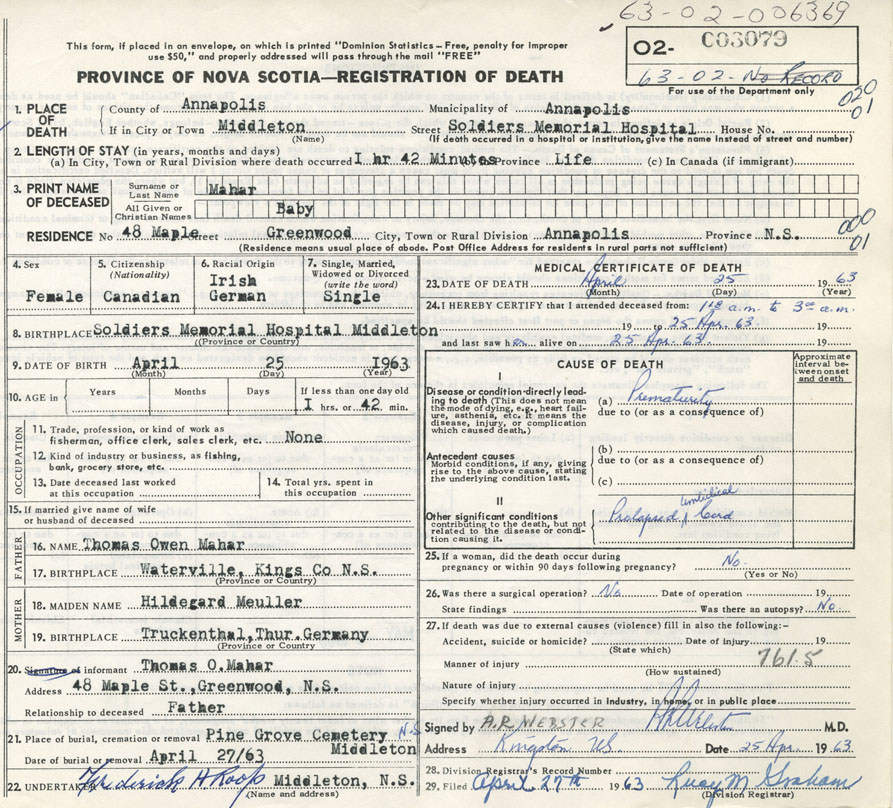 63-02-006369
This form, if placed in an envelope, on which is printed "Dominion Statistics - Free, penalty for improper
use $50," and properly addressed will pass through the mail "FREE"
02- 003079
63-02- No RECORD
For use of the Department only
PROVINCE OF NOVA SCOTIA—REGISTRATION OF DEATH
020
01
1. PLACE OF DEATH
County of Annapolis Municipality of Annapolis
If in City or Town Middleton Street Soldiers Memorial Hospital House No.
(Name) (If death occurred in a hospital or institution, give the name instead of street and number)
2. LENGTH OF STAY (in years, months and days)
(a) In City, Town or Rural Division where death occurred 1 hr 42 Minutes Province Life (c) In Canada (if immigrant)
3. PRINT NAME OF DECEASED
Surname or Last Name Mahar
All Given or Christian Names Baby
000
01
RESIDENCE No 48 Maple Street Greenwood City, Town or Rural Division Annapolis Province N.S.
(Residence means usual place of abode. Post Office Address for residents in rural parts not sufficient)
4. Sex
Female
5. Citizenship
(Nationality)
Canadian
6. Racial Origin
Irish
German
7. Single, Married,
Widowed or Divorced
(write the word)
Single
8. BIRTHPLACE Soldiers Memorial Hospital Middleton
(Province or Country)
9. DATE OF BIRTH April 25 1963
(Month) (Day) (Year)
10. AGE in Years Months Days If less than one day old
1 hrs. or 42 min.
OCCUPATION
11. Trade, profession, or kind of work as
fisherman, office clerk, sales clerk, etc. None
12. Kind of industry or business, as fishing,
bank, grocery store, etc.
13. Date deceased last worked
at this occupation
14. Total yrs. spent in
this occupation
15. If married give name of wife
or husband of deceased
FATHER
16. NAME Thomas Owen Mahar
17. BIRTHPLACE Waterville, Kings Co N.S.
(Province or Country)
MOTHER
18. MAIDEN NAME Hildegard Meuller
19. BIRTHPLACE Truckenthal,Thur.Germany
(Province or Country)
20. Signature of informant Thomas O.Mahar
Address 48 Maple St.,Greenwood, N.S.
Relationship to deceased Father
21. Place of burial, cremation or removal Pine Grove Cemetery N.S
Middleton
Date of burial or removal April 27/63
22. UNDERTAKER Frederick H Roop Middleton, N.S.
(Name and address)
MEDICAL CERTIFICATE OF DEATH
23. DATE OF DEATH April 25 19 63
(Month) (Day) (Year)
24. I HEREBY CERTIFY that I attended deceased from: a.m. to 3 a.m.
19 to 25 Apr. 63. 19
and last saw h er alive on 25 Apr. 63. 19
CAUSE OF DEATH
Approximate
interval be-
tween onset
and death
I
Disease or condition directly lead-
ing to death (This does not mean
the mode of dying, e.g., heart fail-
ure, asthenia, etc. It means the
disease, injury, or complication
which caused death.)
(a) Prematurity
due to (or as a consequence of)
Antecedent causes
Morbid conditions, if any, giving
rise to the above cause, stating
the underlying condition last.
(b)
due to (or as a consequence of)
(c)
II
Other significant conditions
contributing to the death, but not
related to the disease or condi-
tion causing it.
Prolapsed umbilical Cord
25. If a woman, did the death occur during
pregnancy or within 90 days following pregnancy? No.
(Yes or No)
26. Was there a surgical operation? No Date of operation 19
State findings Was there an autopsy? No.
27. If death was due to external causes (violence) fill in also the following:-
Accident, suicide or homicide? Date of injury 19
(State which)
761.5
Manner of injury
(How sustained)
Nature of injury
Specify whether injury occurred in Industry, in home, or in public place
Signed by A.R. WEBSTER M.D.
Address Kingston NS. Date 25 Apr. 19 63
28. Division Registrar's Record Number
29. Filed April 27th 19 63 Lucy M Graham
(Division Registrar)